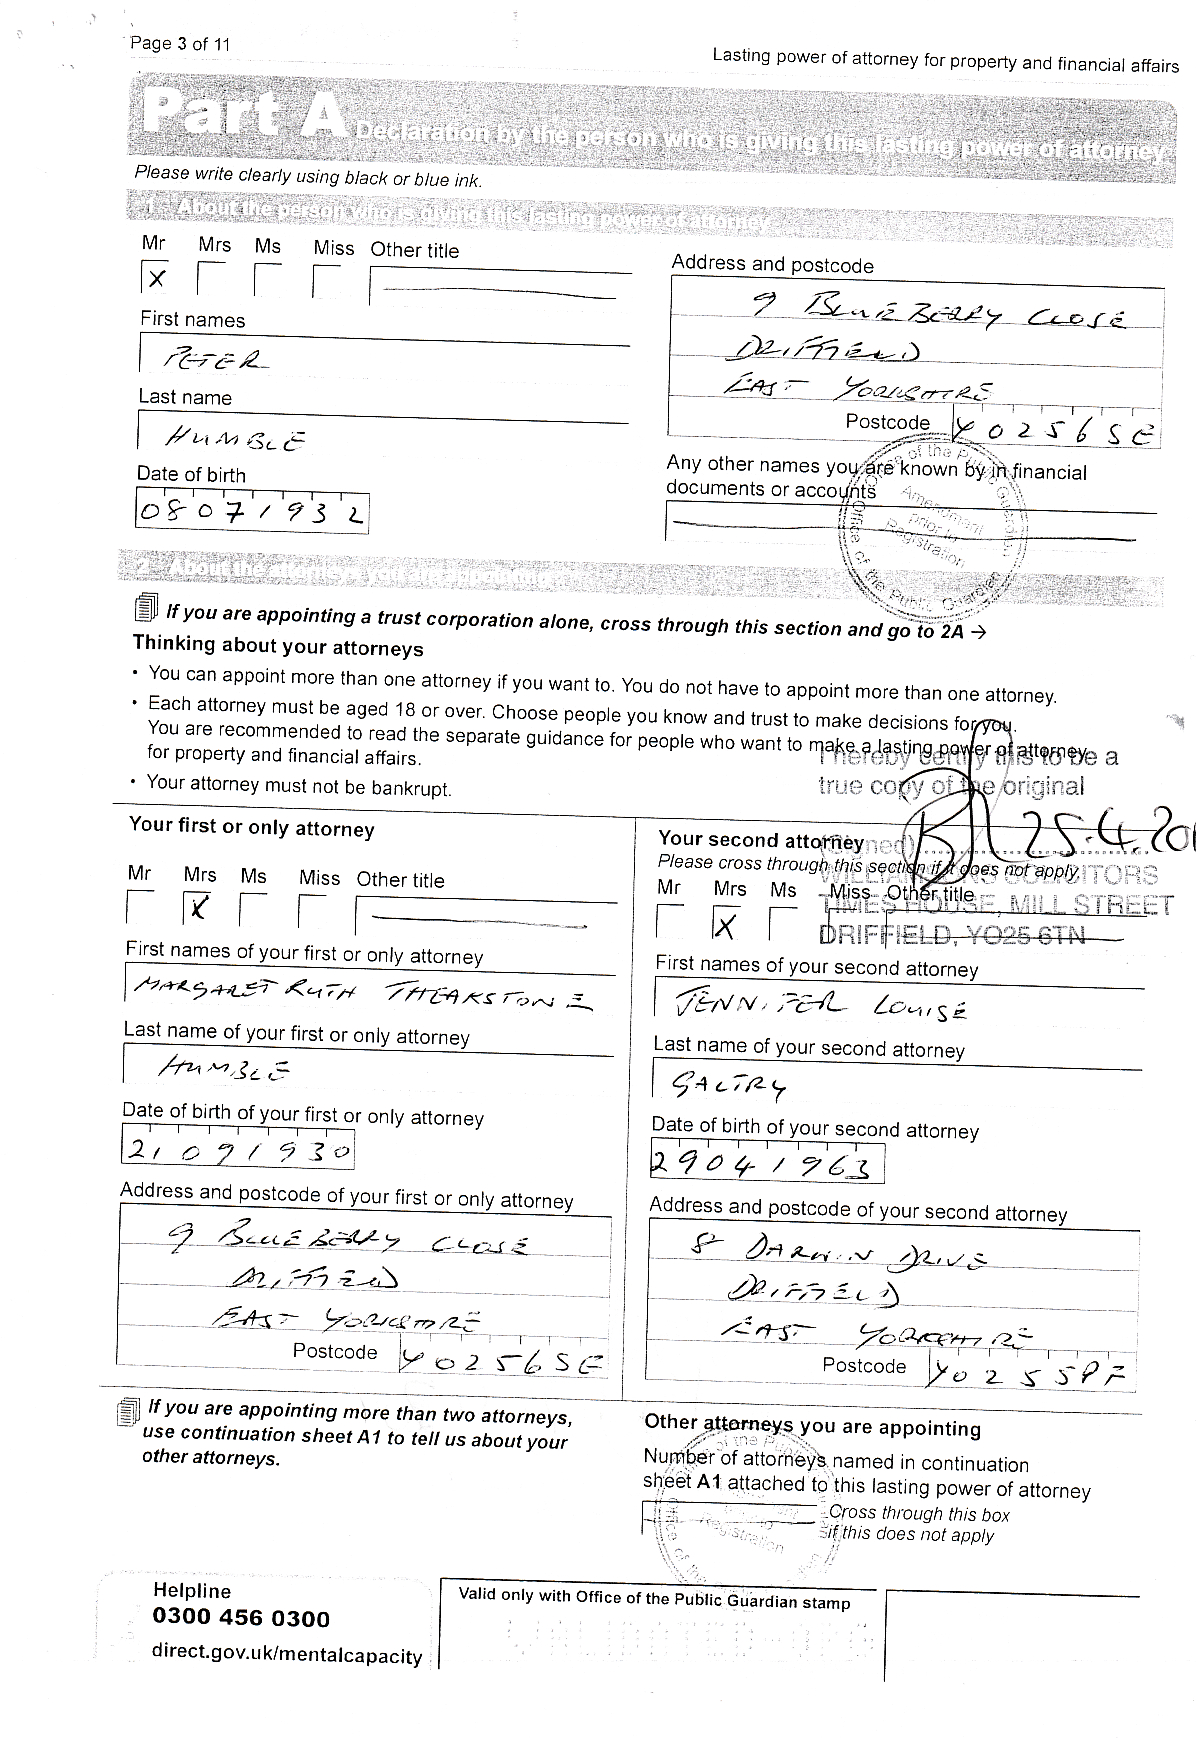 Page 3 of 11
Lasting power of attorney for property and financial affairs
Part A Declaration by the person who is giving this lasting power of attorney
Please write clearly using black or blue ink.
1 - About the person who is giving this lasting power of attorney
Mr Mrs Ms Miss Other title
X
First names
PETER
Last name
HUMBLE
Date of birth
08071932
Address and postcode
9 BLUEBERRY CLOSE
DRIFFIELD
EAST YORKSHIRE
Postcode YO256SE
Any other names you are known by in financial
documents or accounts
Office of the Public Guardian
Amendment
prior to
Registration
2 - About the attorneys you are appointing
If you are appointing a trust corporation alone, cross through this section and go to 2A →
Thinking about your attorneys
• You can appoint more than one attorney if you want to. You do not have to appoint more than one attorney.
• Each attorney must be aged 18 or over. Choose people you know and trust to make decisions for you.
You are recommended to read the separate guidance for people who want to make a lasting power of attorney
for property and financial affairs.
• Your attorney must not be bankrupt.
I hereby certify this to be a
true copy of the original
(Signed) 25.4.201
SOLICITORS
TIMES HOUSE, MILL STREET
DRIFFIELD, YO25 6TN
Your first or only attorney
Mr Mrs Ms Miss Other title
X
First names of your first or only attorney
MARGARET RUTH THEAKSTONE
Last name of your first or only attorney
HUMBLE
Date of birth of your first or only attorney
21091930
Address and postcode of your first or only attorney
9 BLUEBERRY CLOSE
DRIFFIELD
EAST YORKSHIRE
Postcode YO256SE
Your second attorney
Please cross through this section if it does not apply.
Mr Mrs Ms Miss Other title
X
First names of your second attorney
JENNIFER LOUISE
Last name of your second attorney
GALTRY
Date of birth of your second attorney
29041963
Address and postcode of your second attorney
8 DARWIN DRIVE
DRIFFIELD
EAST YORKSHIRE
Postcode YO255PF
If you are appointing more than two attorneys,
use continuation sheet A1 to tell us about your
other attorneys.
Other attorneys you are appointing
Number of attorneys named in continuation
sheet A1 attached to this lasting power of attorney
Cross through this box
if this does not apply
Registration
Helpline
0300 456 0300
direct.gov.uk/mentalcapacity
Valid only with Office of the Public Guardian stamp